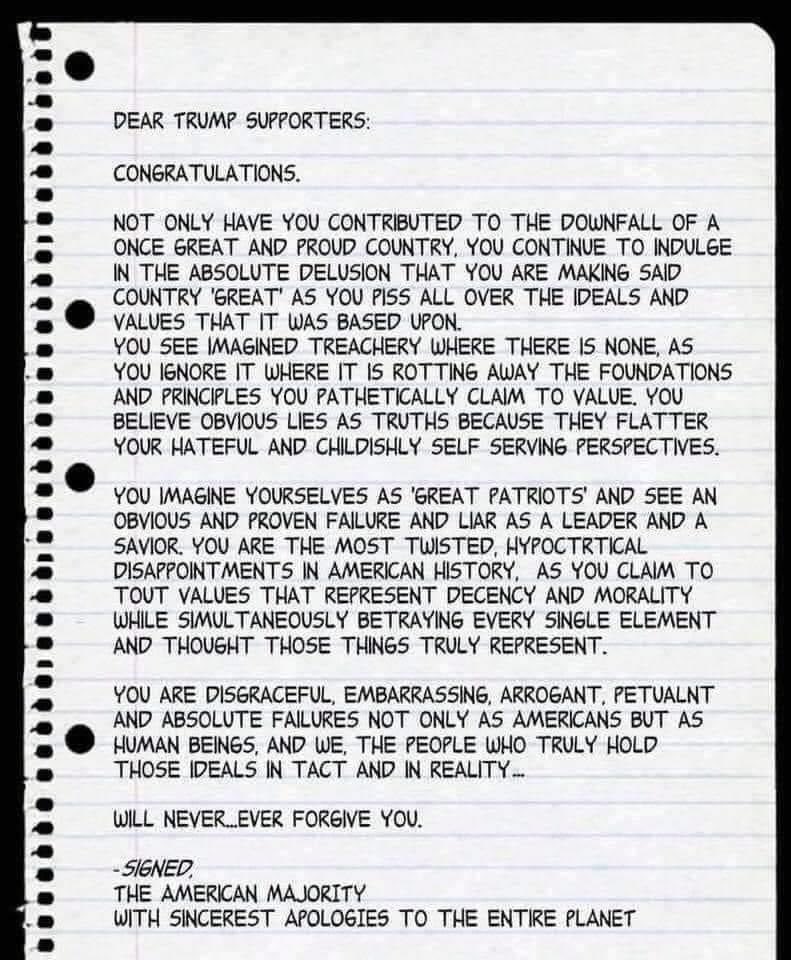 DEAR TRUMP SUPPORTERS:
CONGRATULATIONS.
NOT ONLY HAVE YOU CONTRIBUTED TO THE DOWNFALL OF A
ONCE GREAT AND PROUD COUNTRY, YOU CONTINUE TO INDULGE
IN THE ABSOLUTE DELUSION THAT YOU ARE MAKING SAID
COUNTRY 'GREAT' AS YOU PISS ALL OVER THE IDEALS AND
VALUES THAT IT WAS BASED UPON.
YOU SEE IMAGINED TREACHERY WHERE THERE IS NONE, AS
YOU IGNORE IT WHERE IT IS ROTTING AWAY THE FOUNDATIONS
AND PRINCIPLES YOU PATHETICALLY CLAIM TO VALUE. YOU
BELIEVE OBVIOUS LIES AS TRUTHS BECAUSE THEY FLATTER
YOUR HATEFUL AND CHILDISHLY SELF SERVING PERSPECTIVES.
YOU IMAGINE YOURSELVES AS 'GREAT PATRIOTS' AND SEE AN
OBVIOUS AND PROVEN FAILURE AND LIAR AS A LEADER AND A
SAVIOR. YOU ARE THE MOST TWISTED, HYPOCTRTICAL
DISAPPOINTMENTS IN AMERICAN HISTORY, AS YOU CLAIM TO
TOUT VALUES THAT REPRESENT DECENCY AND MORALITY
WHILE SIMULTANEOUSLY BETRAYING EVERY SINGLE ELEMENT
AND THOUGHT THOSE THINGS TRULY REPRESENT.
YOU ARE DISGRACEFUL, EMBARRASSING, ARROGANT, PETUALNT
AND ABSOLUTE FAILURES NOT ONLY AS AMERICANS BUT AS
HUMAN BEINGS, AND WE, THE PEOPLE WHO TRULY HOLD
THOSE IDEALS IN TACT AND IN REALITY...
WILL NEVER...EVER FORGIVE YOU.
-SIGNED,
THE AMERICAN MAJORITY
WITH SINCEREST APOLOGIES TO THE ENTIRE PLANET